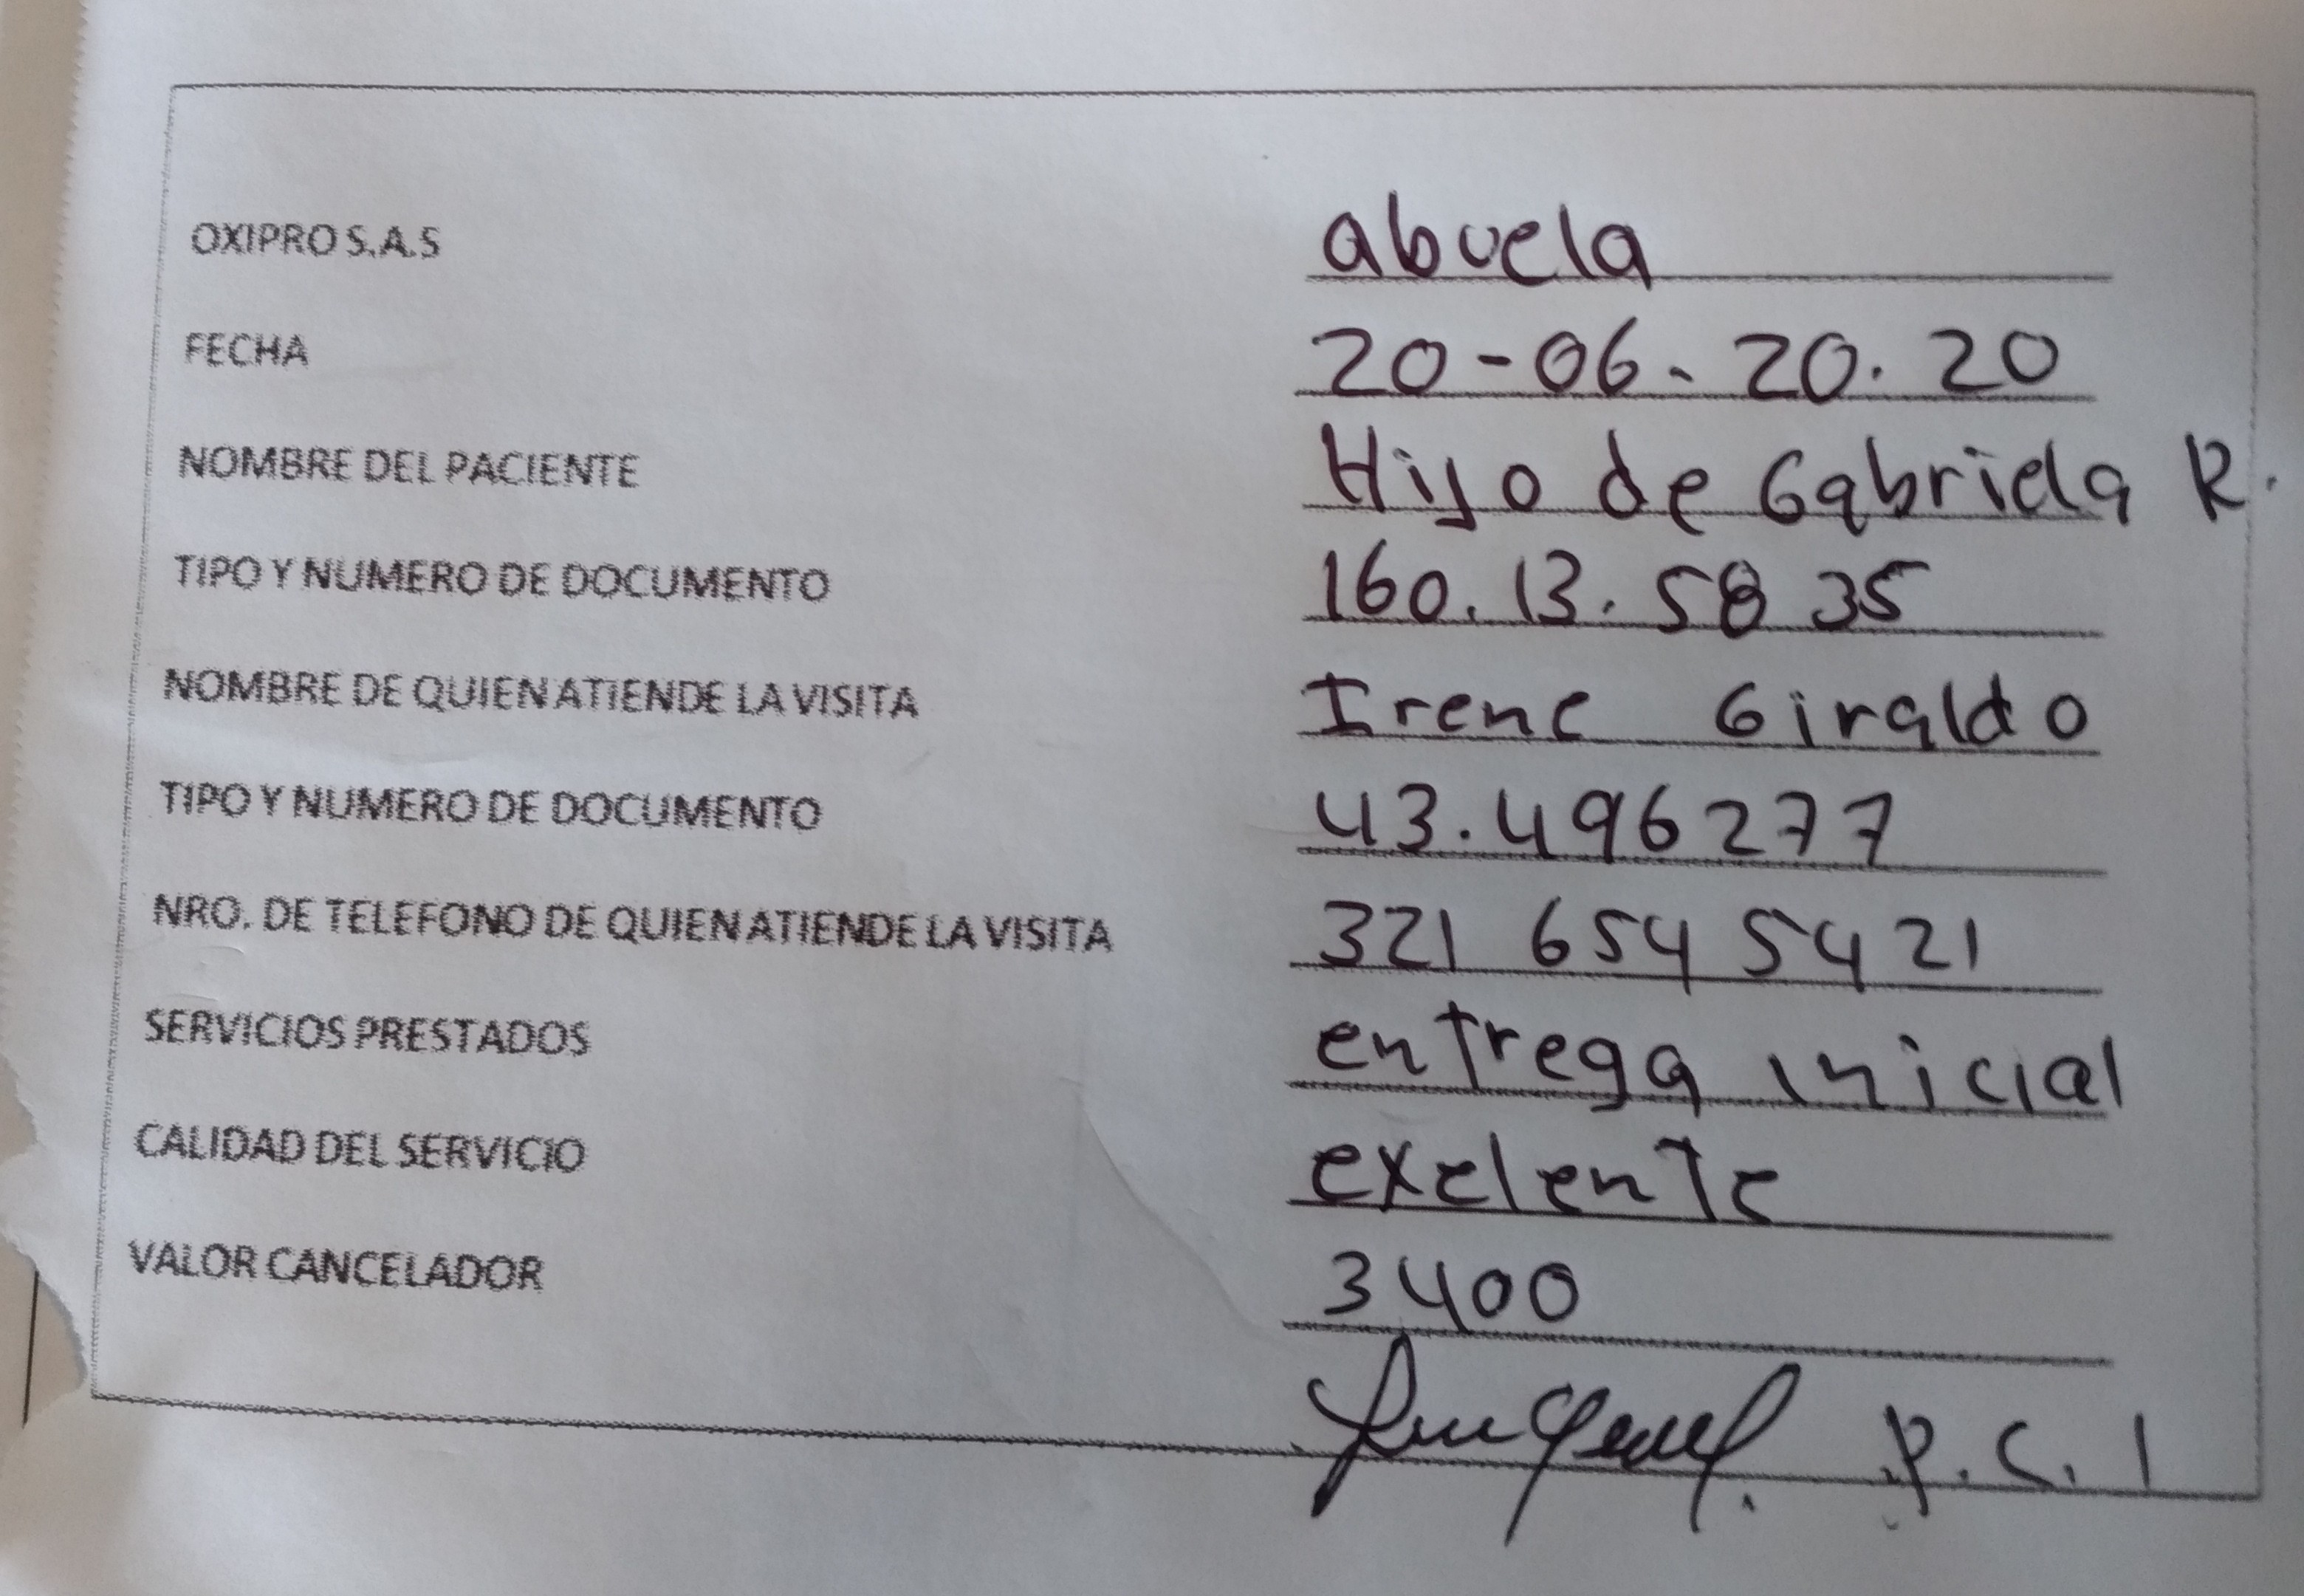 OXIPRO S.A.S abuela
FECHA 20-06-20.20
NOMBRE DEL PACIENTE Hijo de Gabriela R.
TIPO Y NUMERO DE DOCUMENTO 160.13.58 35
NOMBRE DE QUIEN ATIENDE LA VISITA Irene Giraldo
TIPO Y NUMERO DE DOCUMENTO 43.496277
NRO. DE TELEFONO DE QUIEN ATIENDE LA VISITA 321 654 5421
SERVICIOS PRESTADOS entrega inicial
CALIDAD DEL SERVICIO exelente
VALOR CANCELADOR 3400
P.C. 1